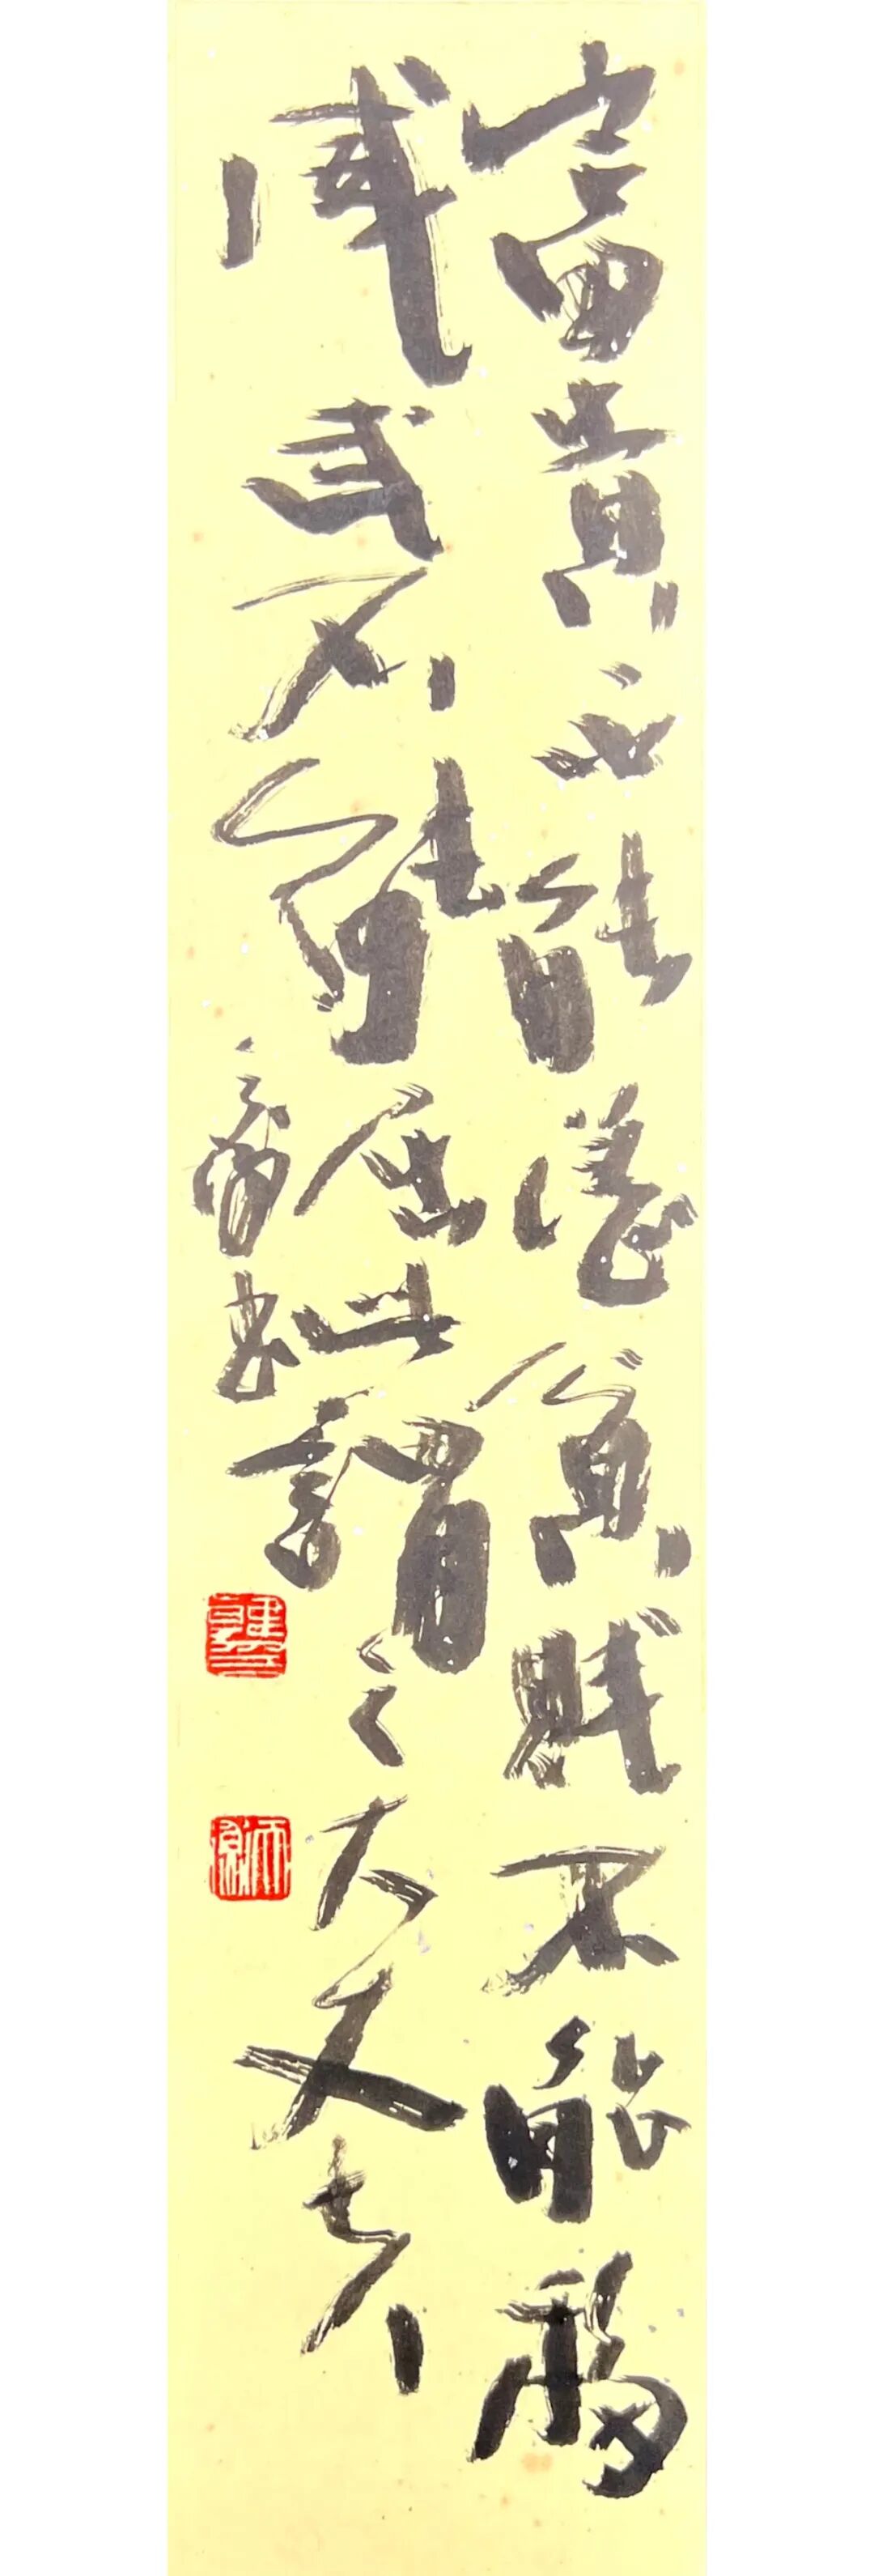 富貴不能淫貧賤不能移
威武不能屈此謂之大丈夫